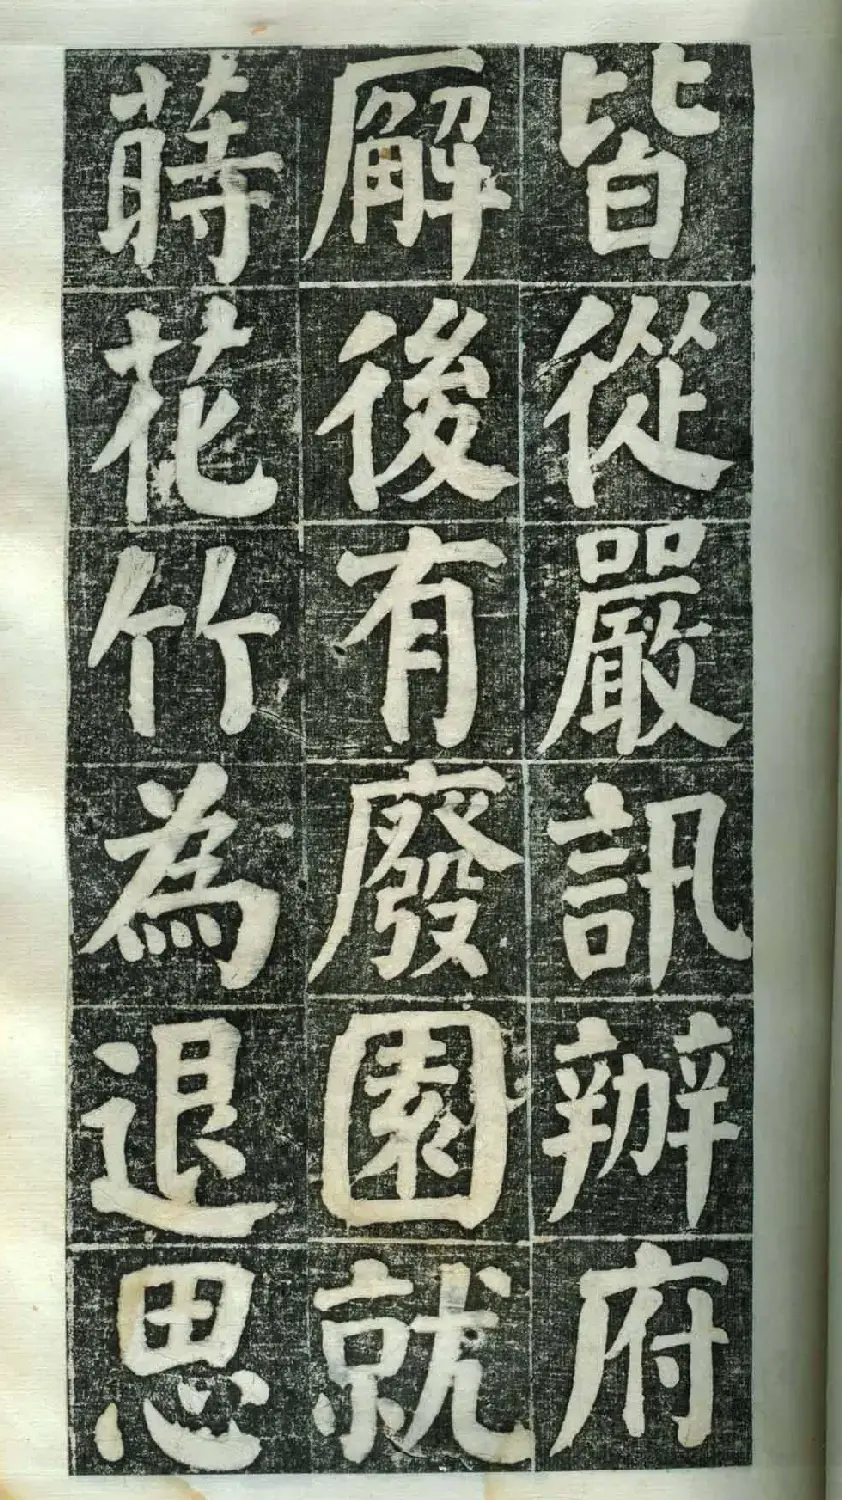 皆從嚴訊辦府
廨後有廢園就
蒔花竹為退思